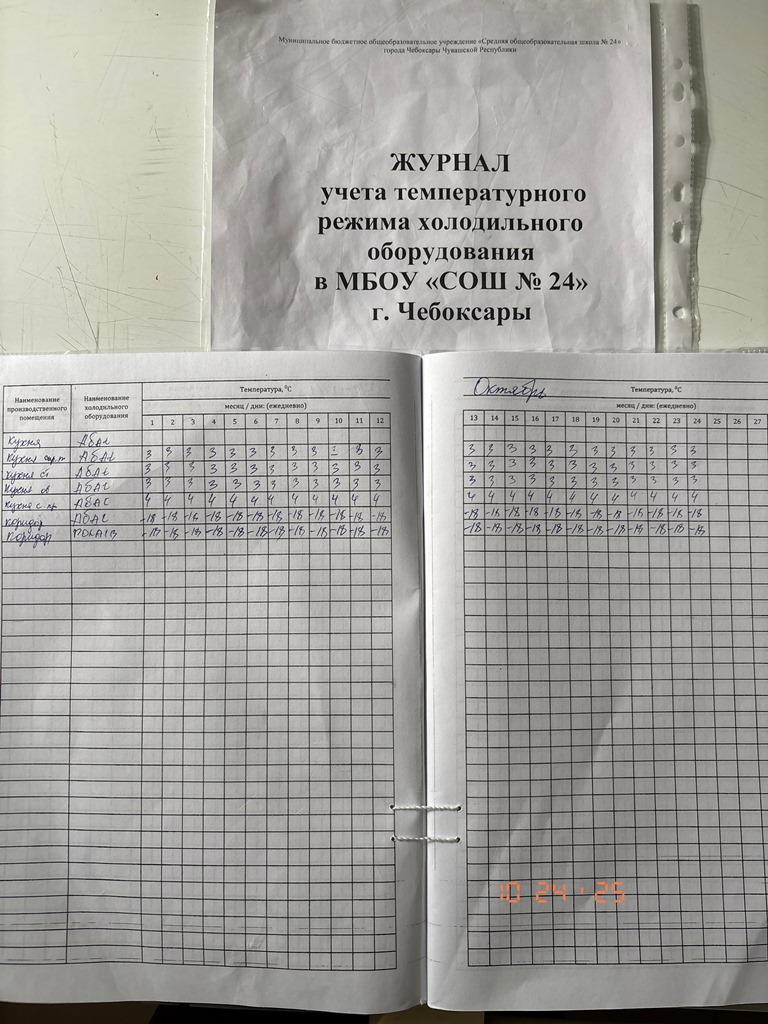 Муниципальное бюджетное общеобразовательное учреждение «Средняя общеобразовательная школа № 24»
города Чебоксары Чувашской Республики
ЖУРНАЛ
учета температурного
режима холодильного
оборудования
в МБОУ «СОШ № 24»
г. Чебоксары
Наименование производственного помещения Наименование холодильного оборудования Температура, ⁰С
месяц / дни: (ежедневно)
1 2 3 4 5 6 7 8 9 10 11 12
Кухня АБАТ
Кухня АБАТ 3 3 3 3 3 3 3 3 3 3 3
Кухня АБАТ 3 3 3 3 3 3 3 3 3 3 3 3
Кухня АБАТ 3 3 3 3 3 3 3 3 3 3 3 3
Кухня АБАТ 4 4 4 4 4 4 4 4 4 4 4 4
Коридор АБАТ -18 -18 -18 -18 -18 -18 -18 -18 -18 -18 -18 -18
Коридор POLAIR -18 -18 -18 -18 -18 -18 -18 -18 -18 -18 -18 -18
Октябрь Температура, ⁰С
месяц / дни: (ежедневно)
13 14 15 16 17 18 19 20 21 22 23 24 25 26 27
3 3 3 3 3 3 3 3 3 3 3 3
3 3 3 3 3 3 3 3 3 3 3 3
3 3 3 3 3 3 3 3 3 3 3 3
4 4 4 4 4 4 4 4 4 4 4 4
-18 -18 -18 -18 -18 -18 -18 -18 -18 -18 -18 -18
-18 -18 -18 -18 -18 -18 -18 -18 -18 -18 -18 -18
10 24 '25